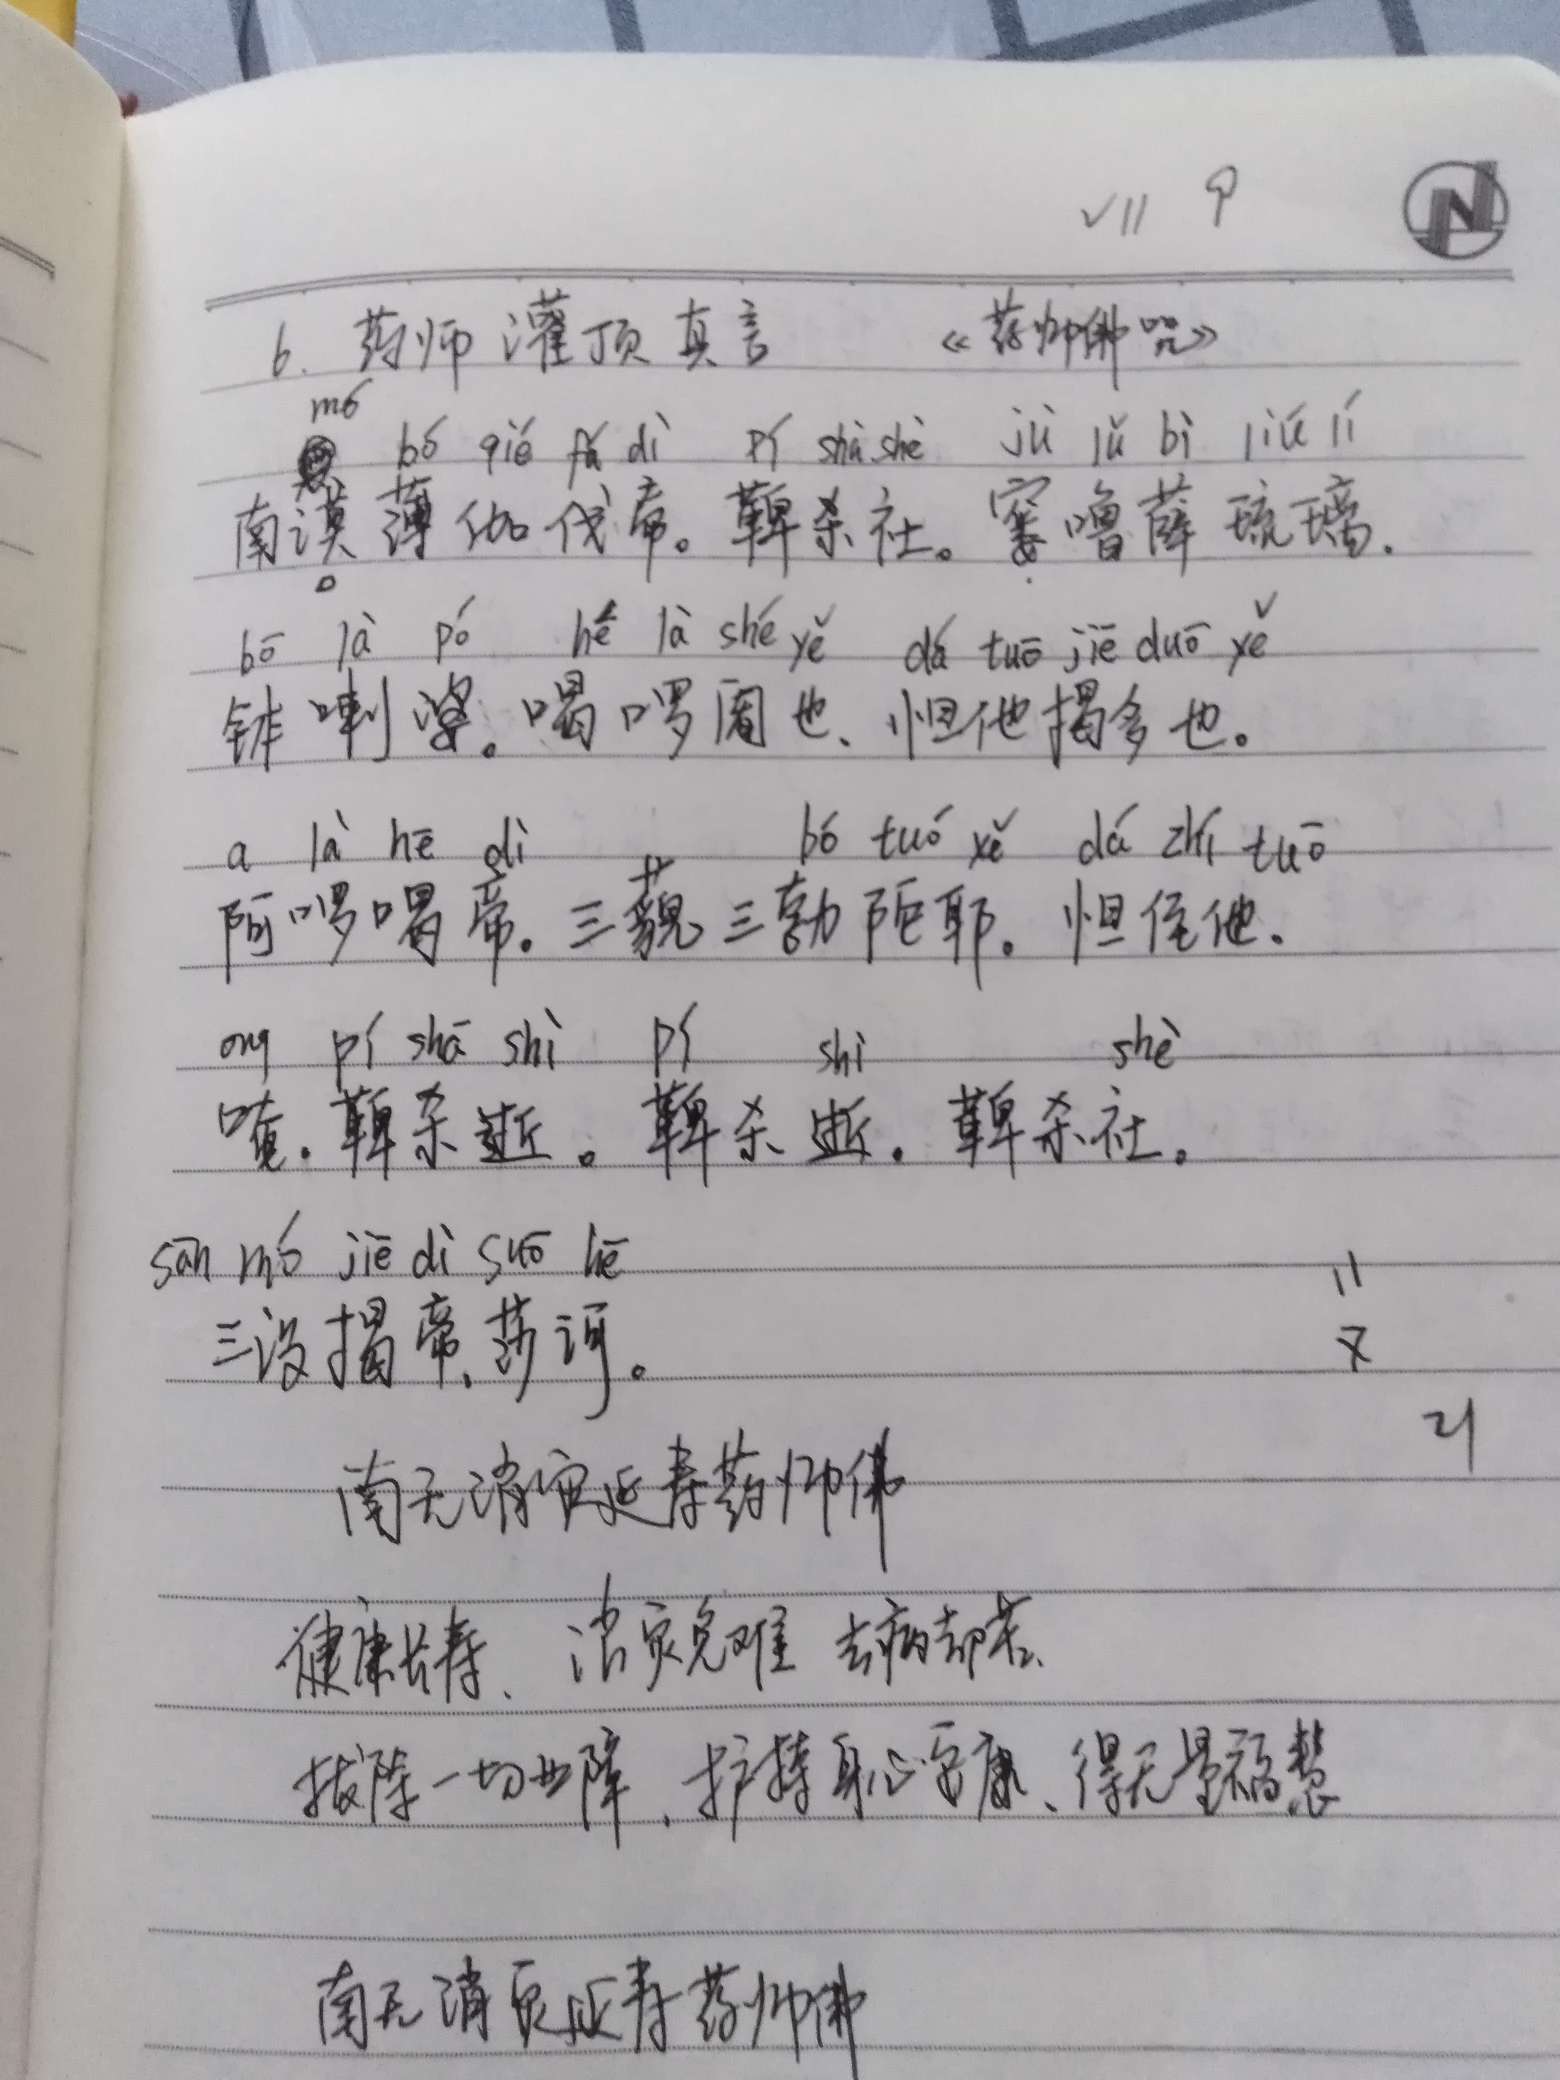 6. 药师灌顶真言 《药师佛咒》
mó bó qié fá dì pí shā shè jù lǔ bì liú lí
南谟薄伽伐帝。鞞杀社。窭噜薜琉璃.
bō là pó hē là shé yě dá tuō jiē duō yě
钵喇婆。喝啰阇也、怛他揭多也。
a là hē dì bó tuó yě dá zhí tuō
阿啰喝帝。三藐三勃陀耶。怛侄他.
ong pí shā shì pí shì shè
唵.鞞杀逝。鞞杀逝.鞞杀社。
sān mó jiē dì suō hē
三没揭帝.莎诃。
南无消灾延寿药师佛
健康长寿、消灾免难 去病却苦、
拔除一切业障、护持身心安康、得无量福慧
南无消灾延寿药师佛